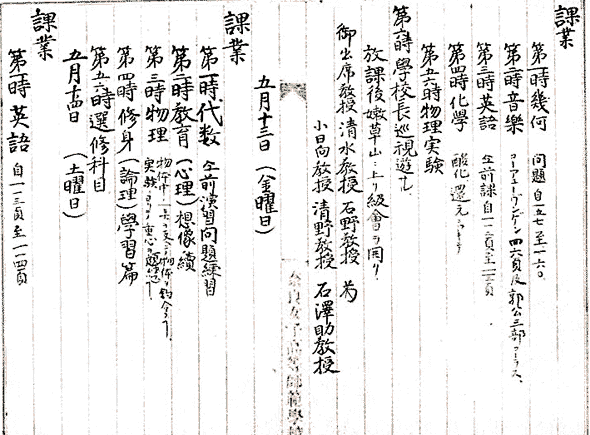 課業
第一時 幾何 問題 自一五七至一六〇
第二時 音樂 四六頁及郭公三部コーラス
第三時 英語 仝前課 自一一〇頁至一一三頁
第四時 化學 酸化 還元
第五六時 物理実験
第六時 學校長巡視遊サル
放課後嫩草山ニ上リ級會ヲ開ク
御出席教授 清水教授 石野教授
小日向教授 清野教授 石澤助教授
奈良女子高等師範學校
五月十三日 (金曜日)
課業
第一時 代数 仝前演習問題練習
第二時 教育 (心理) 想像續
第三時 物理
第四時 修身 (論理) 學習篇
第五六時 選修科目
五月十四日 (土曜日)
課業
第一時 英語 自一一三頁至一一四頁